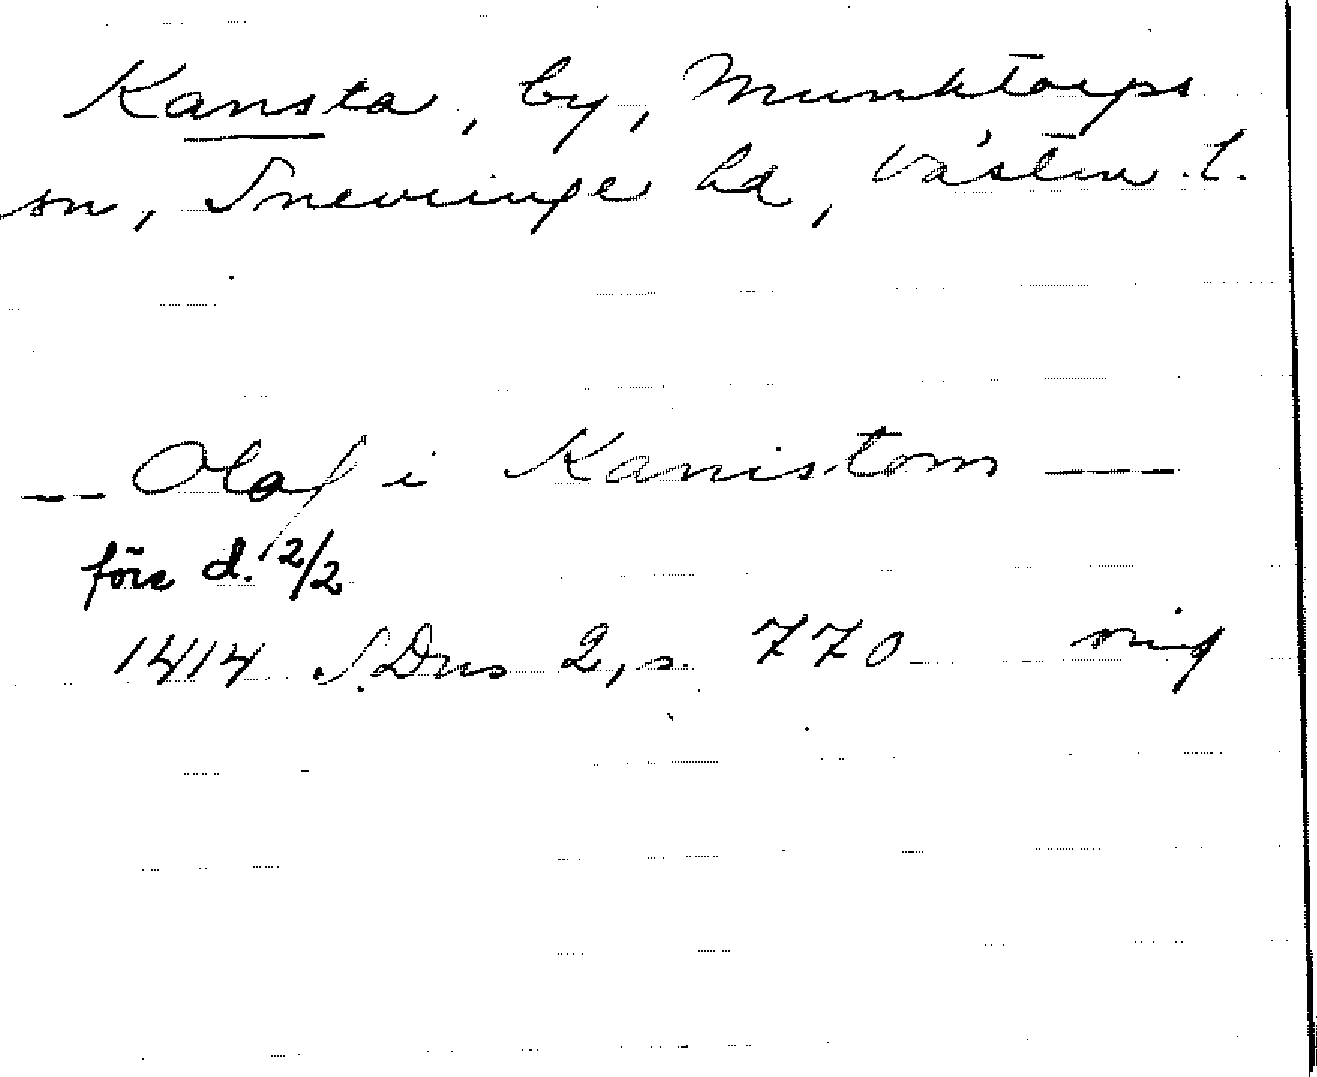 Kansta, by, Munktorps
sn, Snevringe hd, Västm. l.
-- Olaf i Kanistom —
före d. 2/2
1414 S.Dns 2, s. 770 orig